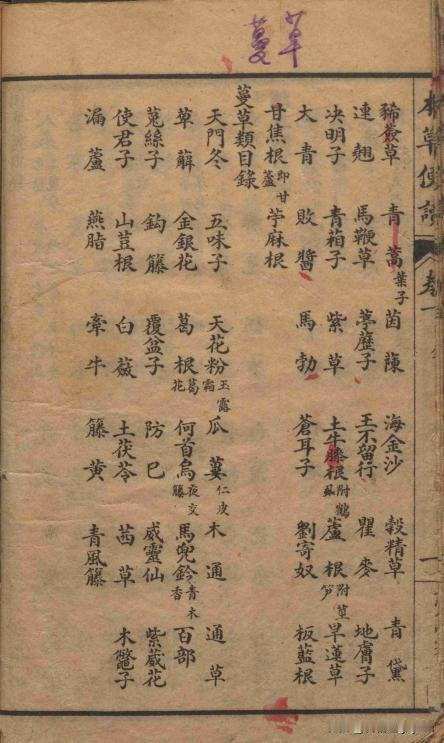 蔓草
本草便讀
豨薟草 青蒿葉子 茵蔯 海金沙 穀精草 青黛
連翹 馬鞭草 葶藶子 王不留行 瞿麥 地膚子
决明子 青葙子 紫草 土牛膝根附鶴虱 蘆根附笋 旱蓮草
大青 敗醬 馬勃 蒼耳子 劉寄奴 板藍根
甘焦根即甘蘆 苧麻根
蔓草類目錄
天門冬 五味子 天花粉玉露霜 瓜蔞仁皮 木通 通草
草薢 金銀花 葛根葛花 何首烏夜交籐 馬兜鈴青木香 百部
菟絲子 鈎籐 覆盆子 防已 威靈仙 紫葳花
使君子 山荳根 白蘞 土茯苓 茜草 木鼈子
漏蘆 燕脂 牽牛 籐黃 青風籐